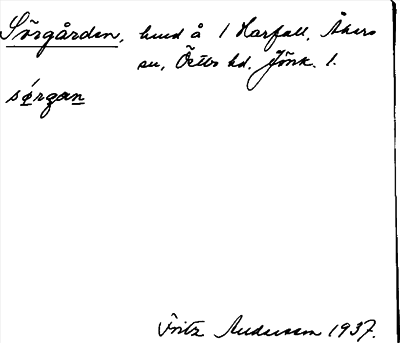 Sörgården, hmd å 1 Harfall, Åkers
sn, Östbo hd. Jönk. l.
sǿrgan
Fritz Andersson 1937.